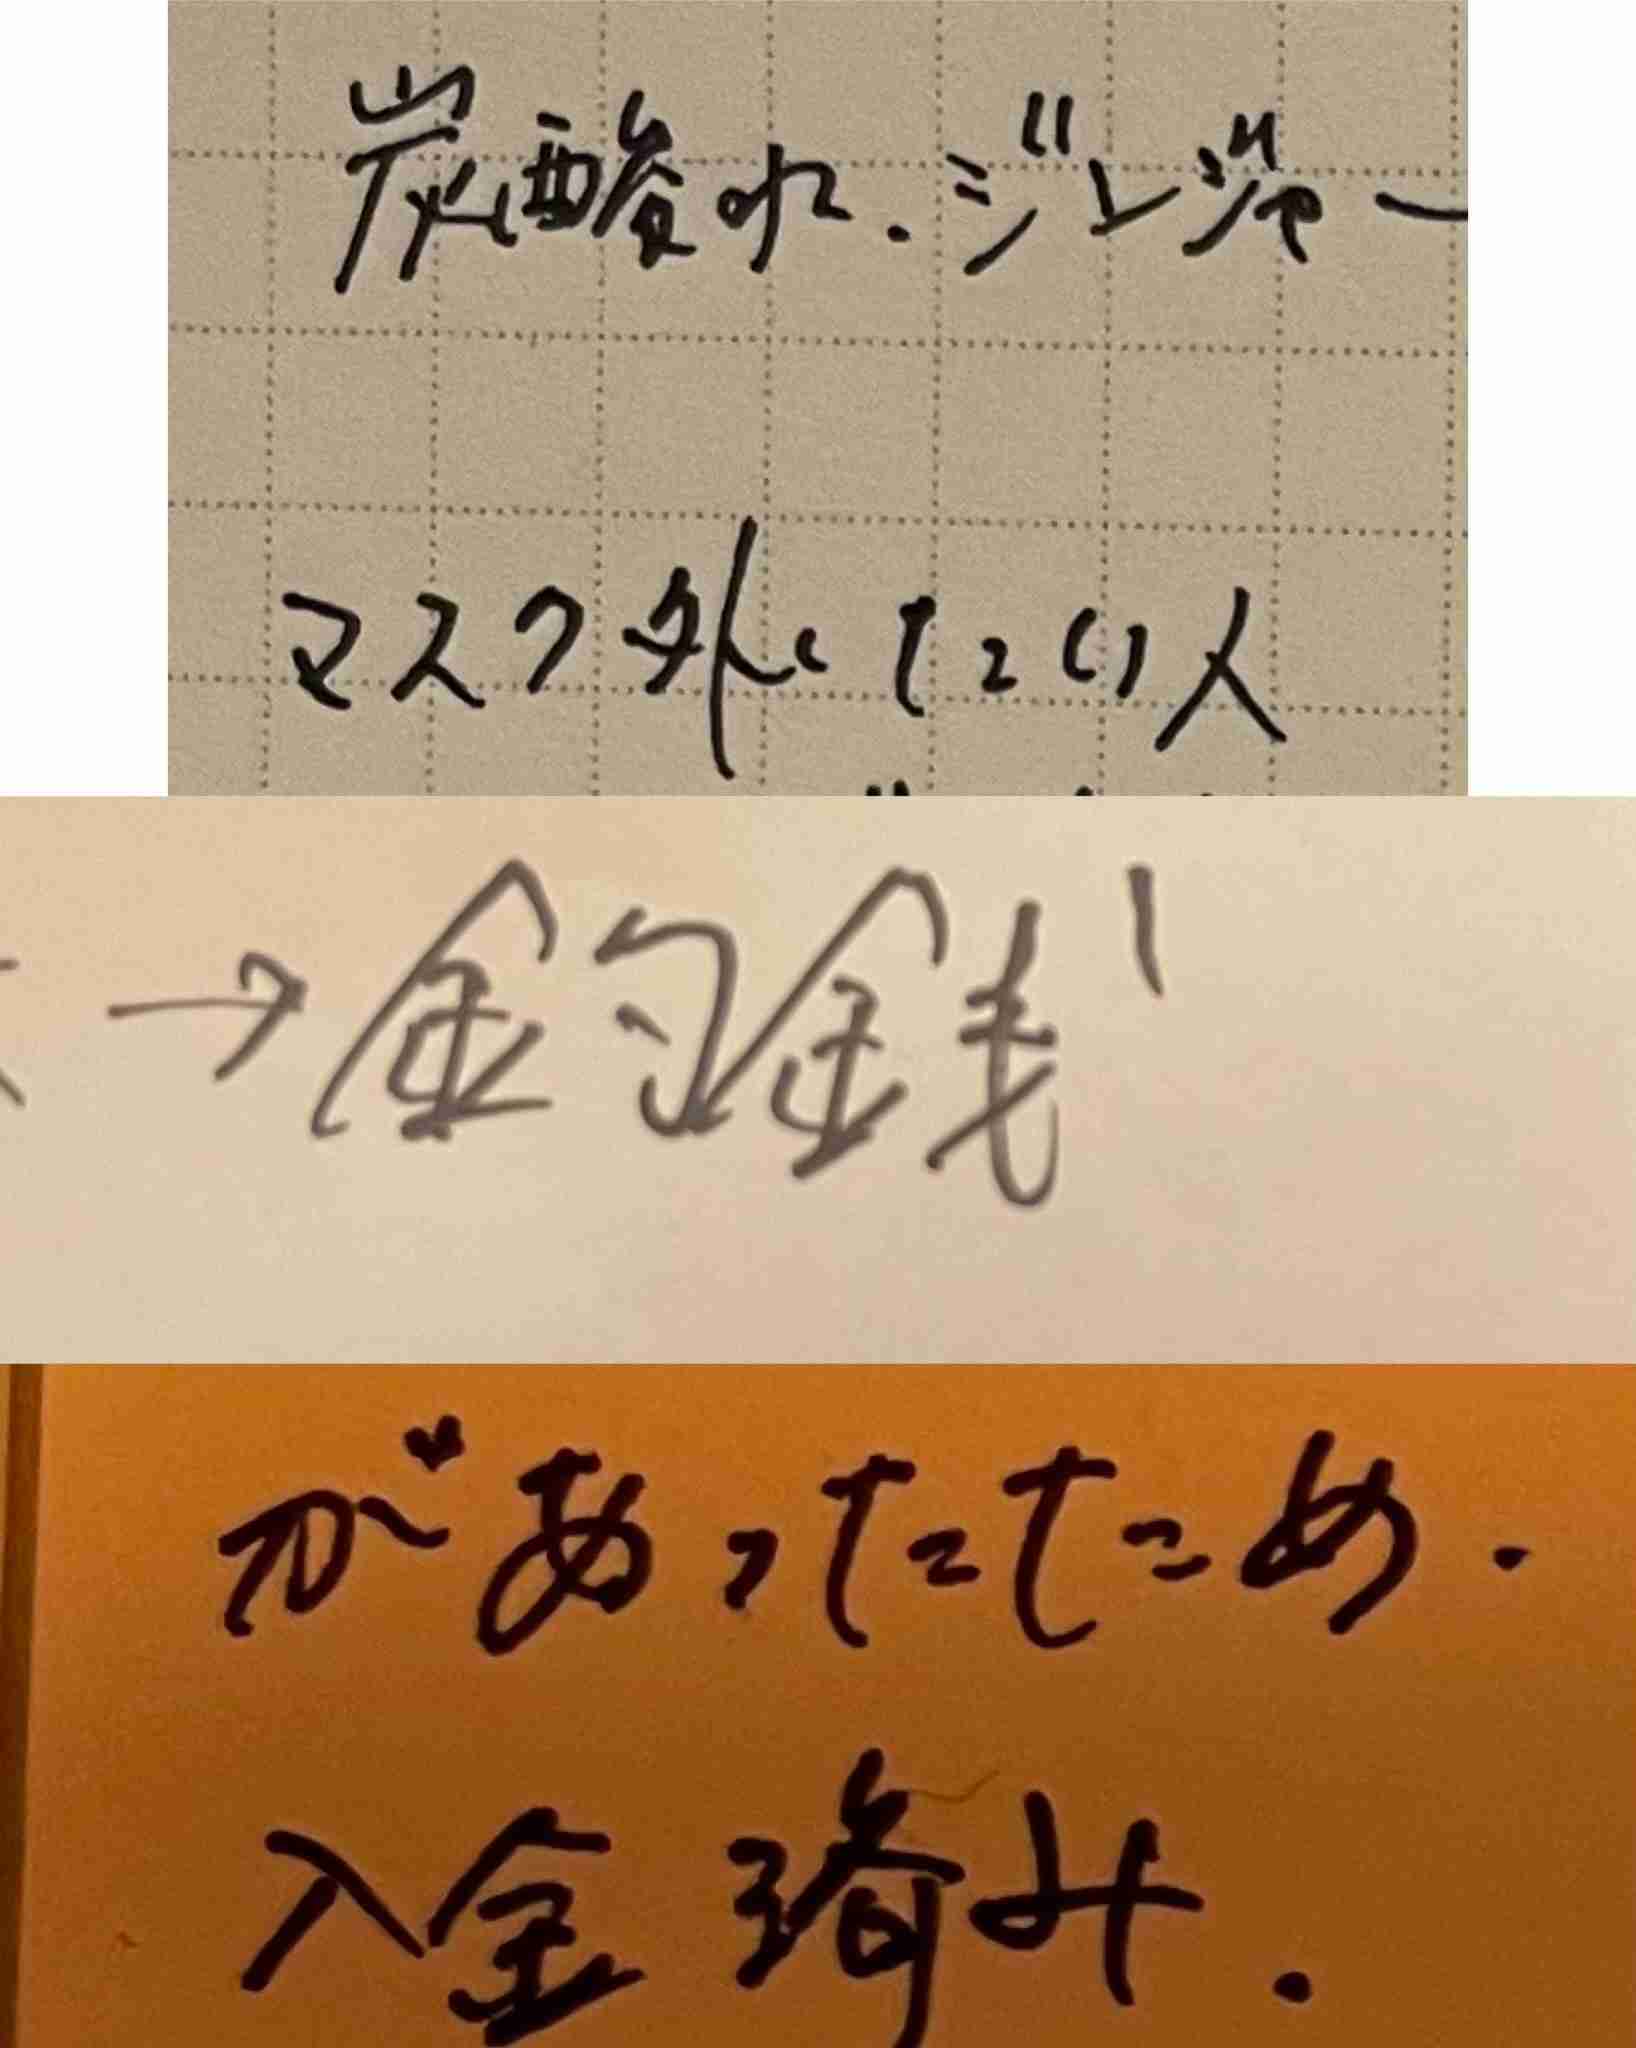 炭酸水.ジンジャー
マスク外したい人
→釣銭
があったため.
入金済み.